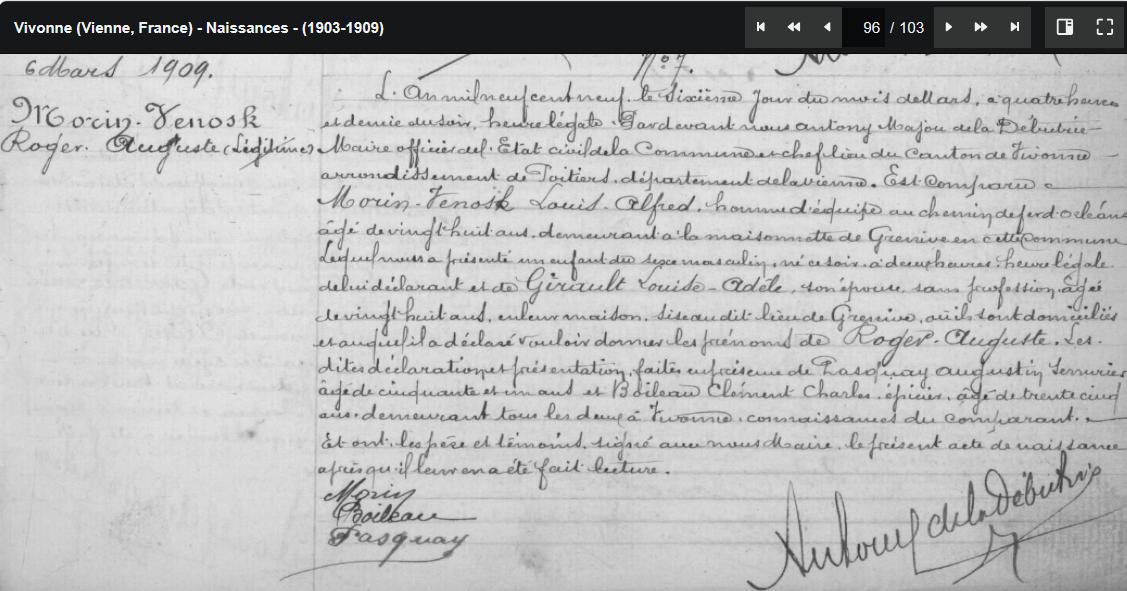 Vivonne (Vienne, France) - Naissances - (1903-1909)
96 / 103
6 Mars 1909.
N° 7.
Morin-Venosk
Roger. Auguste (Légitime)
L'An mil neuf cent neuf, le sixième jour du mois de Mars, à quatre heures
et demie du soir, heure légale. Pardevant nous Antony Majou de la Débutrie
Maire officier de l'Etat civil de la Commune et chef lieu du canton de Vivonne
arrondissement de Poitiers, département de la Vienne. Est comparu
Morin-Venosk Louis Alfred, homme d'équipe au chemin de fer d'Orléans
âgé de vingt huit ans, demeurant à la maisonnette de en cette Commune
Lequel nous a présenté un enfant du sexe masculin, né ce soir, à deux heures, heure légale
de lui déclarant et de Girault Louise-Adèle, son épouse, sans profession, âgée
de vingt huit ans, en leur maison, sise au dit lieu de où ils sont domiciliés
et auquel il a déclaré vouloir donner les prénoms de Roger. Auguste. Les
dites déclaration et présentation, faites en présence de Pasquay Augustin serrurier
âgé de cinquante et un ans et Boileau Clément Charles, épicier, âgé de trente cinq
ans, demeurant tous les deux à Vivonne, connaissances du comparant.
Et ont, les père et témoins, signé avec nous Maire, le présent acte de naissance
après qu'il leur en a été fait lecture.
Morin
Boileau
Pasquay
Antony de la Débutrie